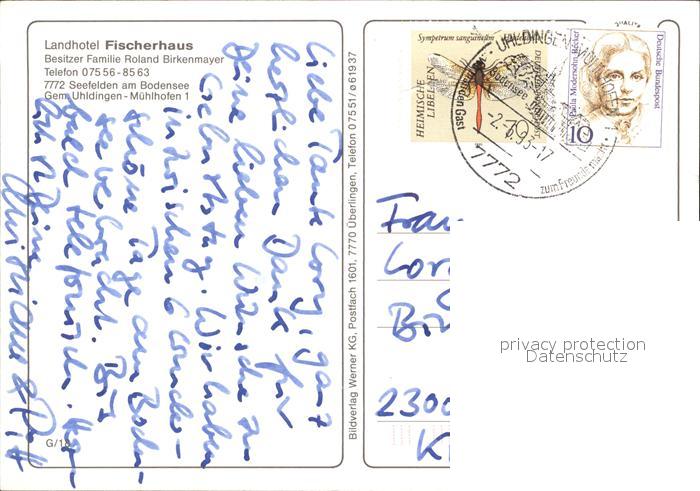 Landhotel Fischerhaus
Besitzer Familie Roland Birkenmayer
Telefon 07556-8563
7772 Seefelden am Bodensee
Gem. Uhldingen-Mühlhofen 1
Liebe Tante Lory, ganz
herzlichen Dank für
Deine lieben Wünsche zum
Geburtstag. Wir haben
inzwischen 6 wunder-
schöne Tage am Boden-
see verbracht. Bis
bald telefonisch.
Deine
Bildverlag Werner KG, Postfach 1601, 7770 Überlingen, Telefon 07551/ø61937
G/18
Sympetrum sanguineum
HEIMISCHE
LIBELLEN
Deutsche Bundespost
Paula Modersohn-Becker
10
UHLDINGEN-MÜHLHOFEN
Bodensee
Gast
zum Freunde macht
7772
Frau
2300
K
privacy protection
Datenschutz